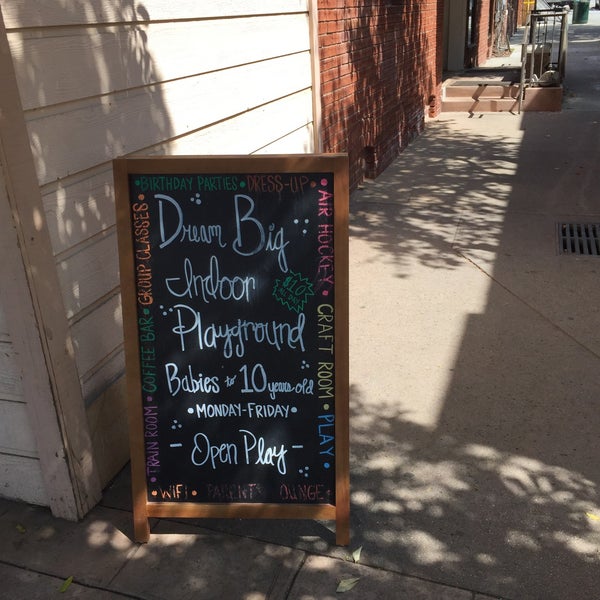 •BIRTHDAY PARTIES • DRESS-UP •
AIR HOCKEY •
CRAFT ROOM
• PLAY •
TRAIN ROOM • COFFEE BAR • GROUP CLASSES •
Dream Big
Indoor
$10
Playground
Babies to 10 years old
• MONDAY-FRIDAY •
- Open Play -
• WIFI •